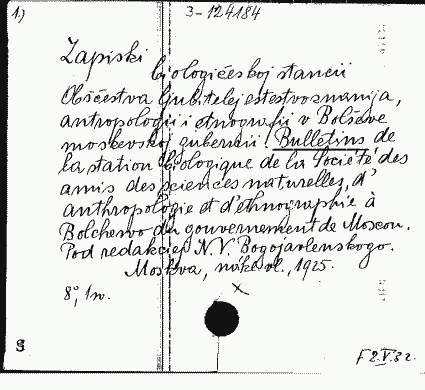 1.)
3-124184
Zapiski
biologičeskoj stancii
Obščestva ljubitelej estestvoznanija,
antropologii i etnografii v Bolševe
moskovskoj gubernii (Bulletins de
la station biologique de la Société des
amis des sciences naturelles, d'
anthropologie et d'ethnographie à
Bolchevo du gouvernement de Moscou.
Pod redakciej N. V. Bogojavlenskogo.
Moskva, nákl. vl., 1925.
8°, 1 sv.
9
F 2.V.32.